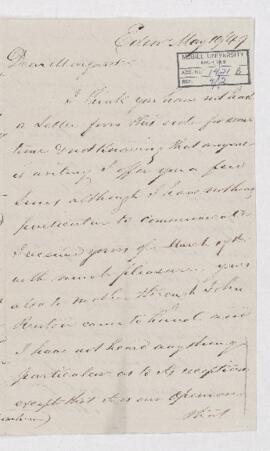 Eden May 10/49
McGILL UNIVERSITY
ACC. NO. 1421
REF.
Dear Margaret
I think you have not had
a letter from this side for some
time & not knowing that anyone
is writing I offer you a few
lines although I have nothing
particular to communicate
I received yours of March 17th
with much pleasure yours
also to mother through John
Renton came to hand and
I have not heard anything
particular as to its reception
except that it is our opinion
that